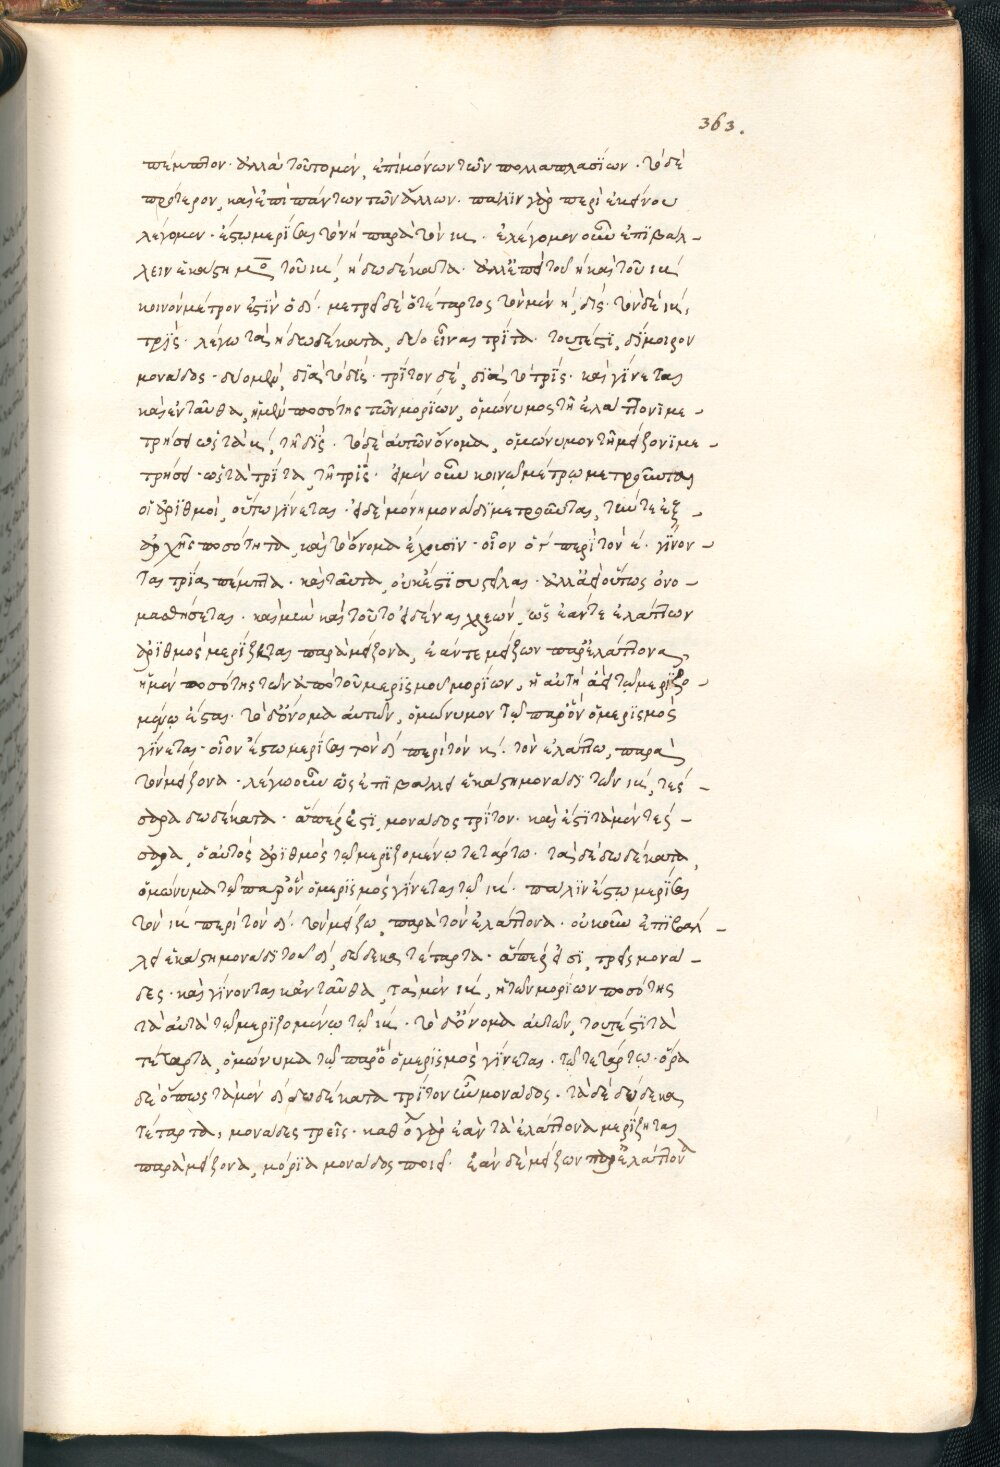 363.
πέμπτον· ἀλλὰ τοῦτο μὲν, ἐπὶ μόνων τῶν πολλαπλασίων· τὸ δὲ
πρότερον, καὶ ἐπὶ πάντων τῶν ἄλλων· πάλιν γὰρ περὶ ἐκείνου
λέγομεν· ἔστω μερίσαι τὸν η παρὰ τὸν ιβ· ἐλέγομεν οὖν ἐπιβάλ-
λειν ἑκάστῃ μο τοῦ ιβ, η δωδέκατα· ἀλλ' ἐπεὶ τοῦ η καὶ τοῦ ιβ
κοινὸν μέτρον ἐστὶν ὁ δ· μετρεῖ δὲ ὁ τέταρτος τὸν μὲν η, δίς· τὸν δὲ ιβ,
τρίς· λέγω τὰ η δωδέκατα, δύο εἶναι τρίτα· τουτέστι, δίμοιρον
μονάδος· δύο μὲν, διὰ τὸ δίς· τρίτον δὲ, διὰ τὸ τρίς· καὶ γίνεται
κἀνταῦθα, ἡ μὲν ποσότης τῶν μορίων, ὁμώνυμος τῇ ἐλάττονι με-
τρήσει ὡς τὰ β, τῇ δίς· τὸ δὲ αὐτῶν ὄνομα, ὁμώνυμον τῇ μείζονι με-
τρήσει· ὡς τὰ τρίτα, τῇ τρίς· εἰ μὲν οὖν κοινῷ μέτρῳ μετροῦνται
οἱ ἀριθμοί, οὕτω γίνεται· εἰ δὲ μόνῃ μονάδι μετροῦνται, τήν τε ἐξ
ἀρχῆς ποσότητα, καὶ τὸ ὄνομα ἔχουσιν· οἷον ὁ γ περὶ τὸν ε· γίνον-
ται τρία πέμπτα· καὶ ταῦτα, οὐκέτι συστεῖλαι· ἀλλ' ἀεὶ οὕτως ὀνο-
μασθήσεται· καὶ μὴν καὶ τοῦτο εἰδέναι χρεών, ὡς ἐάν τε ἐλάττων
ἀριθμὸς μερίζηται παρὰ μείζονα, ἐάν τε μείζων παρ' ἐλάττονα,
ἡ μὲν ποσότης τῶν ἀπὸ τοῦ μερισμοῦ μορίων, ἡ αὐτὴ ἀεὶ τῷ μεριζο-
μένῳ ἔσται· τὸ δ' ὄνομα αὐτῶν, ὁμώνυμον τῷ παρ' ὃν ὁ μερισμὸς
γίνεται· οἷον ἔστω μερίσαι τὸν δ περὶ τὸν ιβ· τὸν ἐλάττω, παρὰ
τὸν μείζονα· λέγω οὖν ὡς ἐπιβάλλει ἑκάστῃ μονάδι τῶν ιβ, τέσ-
σαρα δωδέκατα· ἅπερ ἐστὶ, μονάδος τρίτον· καὶ ἔστι τὰ μὲν τέσ-
σαρα, ὁ αὐτὸς ἀριθμὸς τῷ μεριζομένῳ τετάρτῳ· τὰ δὲ δωδέκατα,
ὁμώνυμα τῷ παρ' ὃν ὁ μερισμὸς γίνεται τῷ ιβ· πάλιν ἔστω μερίσαι
τὸν ιβ περὶ τὸν δ· τὸν μείζω, παρὰ τὸν ἐλάττονα· οὐκοῦν ἐπιβάλ-
λει ἑκάστῃ μονάδι τοῦ δ, δώδεκα τέταρτα· ἅπερ εἰσὶ, τρεῖς μονά-
δες· καὶ γίνονται κἀνταῦθα, τὰ μὲν ιβ, ἡ τῶν μορίων ποσότης
τὰ αὐτὰ τῷ μεριζομένῳ τῷ ιβ· τὸ δ' ὄνομα αὐτῶν, τουτέστι τὰ
τέταρτα, ὁμώνυμα τῷ παρ' ὃ ὁ μερισμὸς γίνεται· τῷ τετάρτῳ· ὅρα
δὲ ὅπως τὰ μὲν δ δωδέκατα τρίτον ἦν μονάδος· τὰ δὲ δώδεκα
τέταρτα, μονάδες τρεῖς· καθὸ γὰρ ἐὰν τὰ ἐλάττονα μερίζηται
παρὰ μείζονα, μόρια μονάδος ποιεῖ· ἐὰν δὲ μείζων παρ' ἐλάττονα